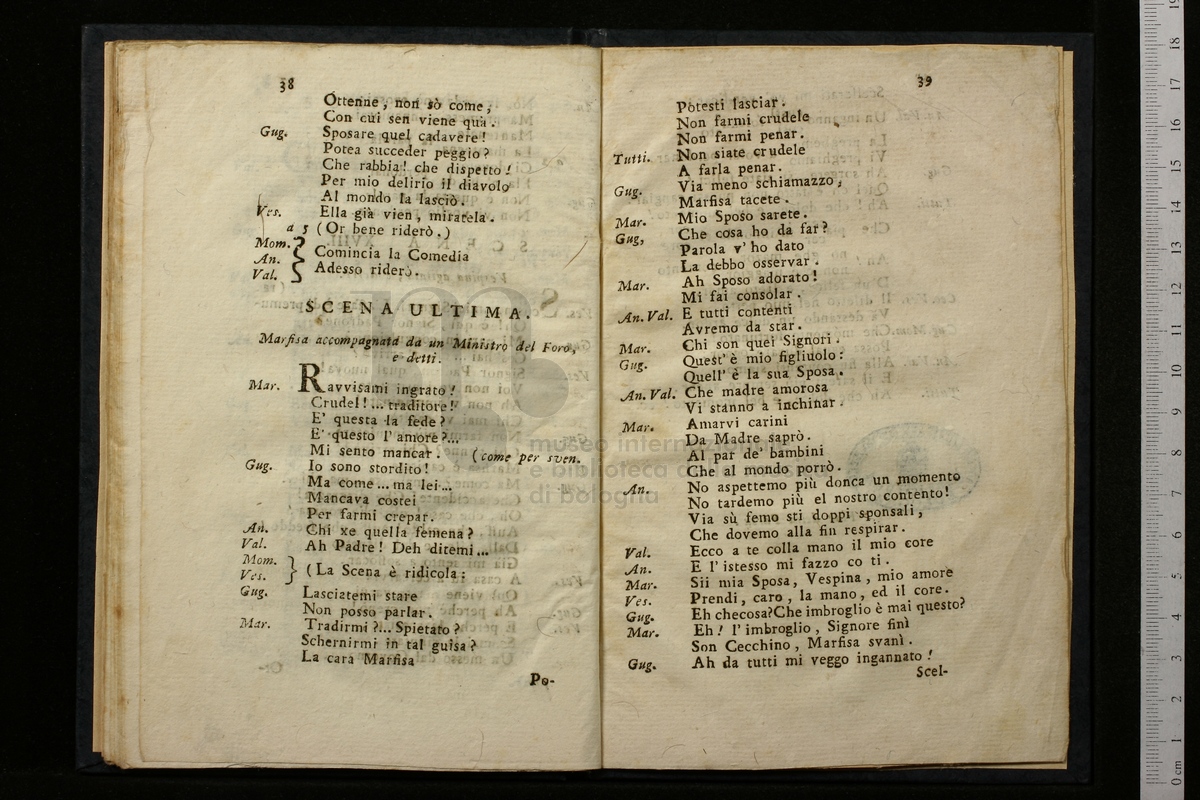 38
Ottenne, non sò come,
Con cui sen viene quà.
Gug. Sposare quel cadavere!
Potea succeder peggio?
Che rabbia! che dispetto!
Per mio delirio il diavolo
Al mondo la lasciò.
Ves. Ella già vien, miratela.
a 5 (Or bene riderò.)
Mom.
An. Comincia la Comedia
Val. Adesso riderò.
SCENA ULTIMA.
Marfisa accompagnata da un Ministro del Foro,
e detti.
Mar. Ravvisami ingrato!
Crudel!... traditore!
E' questa la fede?
E' questo l' amore?...
Mi sento mancar. (come per sven.
Gug. Io sono stordito!
Ma come... ma lei...
Mancava costei
Per farmi crepar.
An. Chi xe quella femena?
Val. Ah Padre! Deh ditemi...
Mom.
Ves. } (La Scena è ridicola:
Gug. Lasciatemi stare
Non posso parlar.
Mar. Tradirmi?!... Spietato?
Schernirmi in tal guisa?
La cara Marfisa
Po-
39
Potesti lasciar.
Non farmi crudele
Non farmi penar.
Tutti. Non siate crudele
A farla penar.
Gug. Via meno schiamazzo,
Marfisa tacete.
Mar. Mio Sposo sarete.
Gug, Che cosa ho da far?
Parola v' ho dato
La debbo osservar.
Mar. Ah Sposo adorato!
Mi fai consolar.
An. Val. E tutti contenti
Avremo da star.
Mar. Chi son quei Signori.
Gug. Quest' è mio figliuolo:
Quell' è la sua Sposa.
An. Val. Che madre amorosa
Vi stanno a inchinar.
Mar. Amarvi carini
Da Madre saprò.
Al par de' bambini
Che al mondo porrò.
An. No aspettemo più donca un momento
No tardemo più el nostro contento!
Via sù femo sti doppi sponsali,
Che dovemo alla fin respirar.
Val. Ecco a te colla mano il mio core
An. E l' istesso mi fazzo co ti.
Mar. Sii mia Sposa, Vespina, mio amore
Ves. Prendi, caro, la mano, ed il core.
Gug. Eh checosa? Che imbroglio è mai questo?
Mar. Eh! l' imbroglio, Signore finì
Son Cecchino, Marfisa svanì.
Gug. Ah da tutti mi veggo ingannato!
Scel-
museo internazionale
e biblioteca d
di bologna